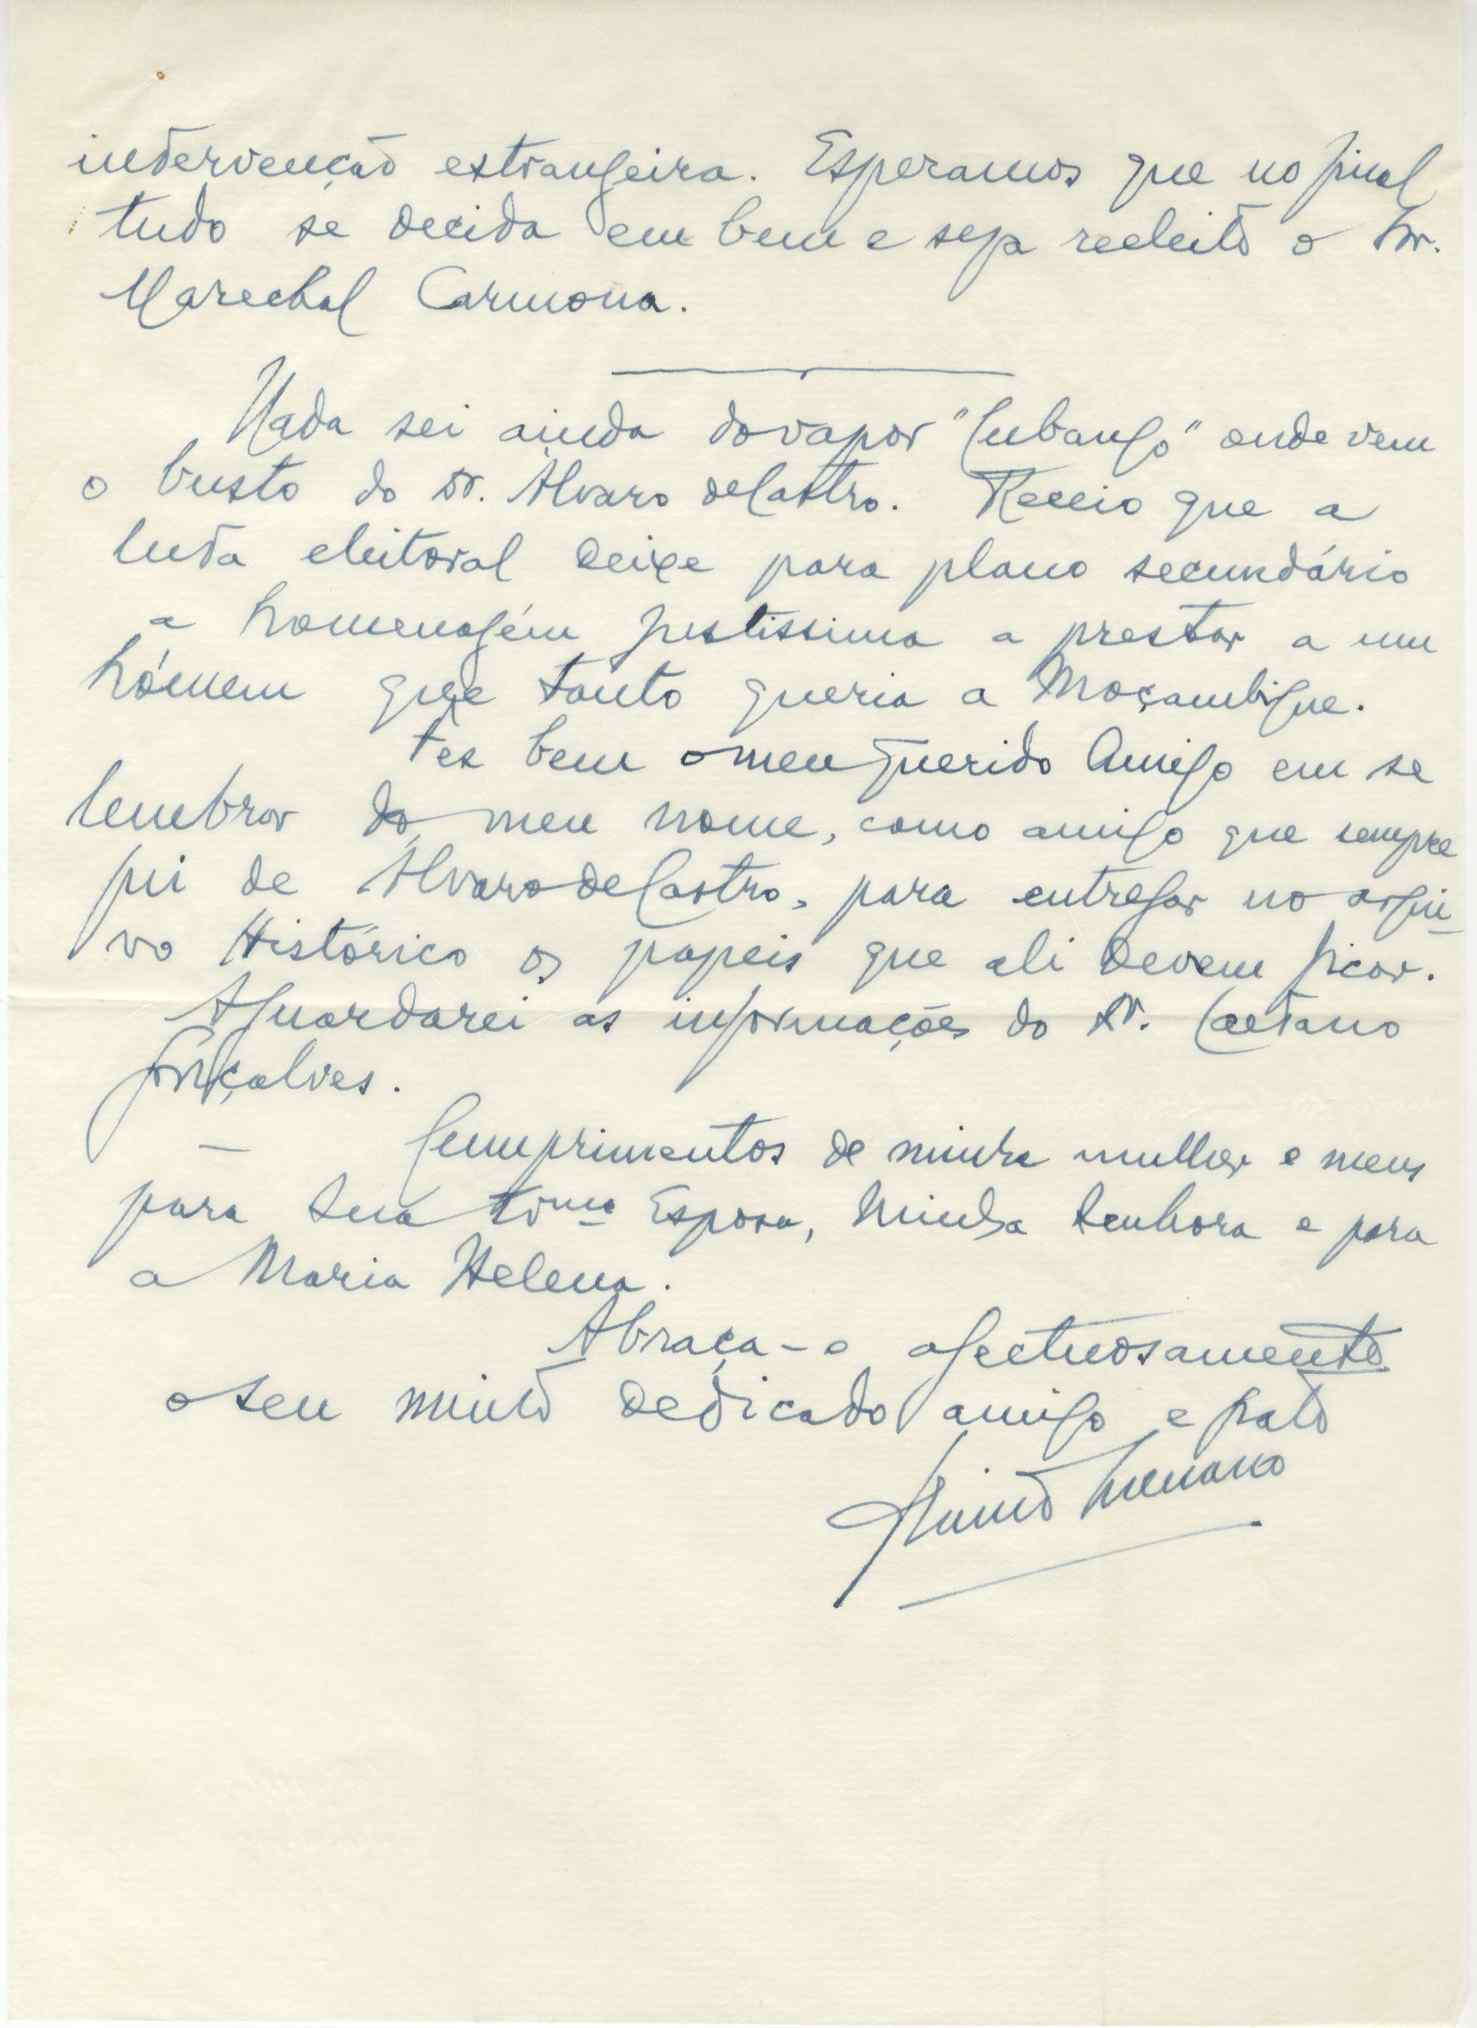 intervenção estrangeira. Esperamos que no final
tudo se decida em bem e seja reeleito o Snr.
Marechal Carmona.
Nada sei ainda do vapor "Cubango" onde vem
o busto do Dr. Álvaro de Castro. Receio que a
luta eleitoral deixe para plano secundário
a homenagém justissima a prestar a um
hómem que tanto queria a Moçambique.
Fes bem o meu querido Amigo em se
lembrar do meu nome, como amigo que sempre
fui de Alvaro de Castro, para entregar no arqui-
vo Histórico os papeis que ali devem ficar.
Aguardarei as informações do Dr. Caetano
Gonçalves.
Cumprimentos de minha mulher e meus
para sua Esposa, Minha Senhora e para
a Maria Helena.
Abraça-o afectuosamente
o seu muito dedicado amigo e grato